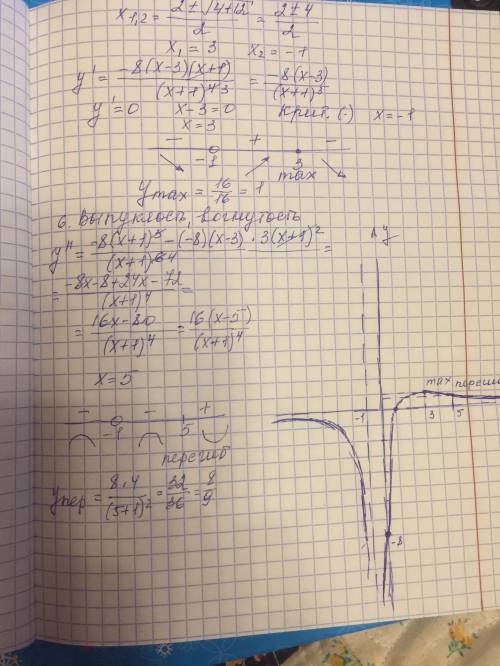 x₁,₂ = (2 ± √4+12)/2 = (2 ± 4)/2
x₁ = 3 x₂ = -1
y' = -8(x-3)(x+1)/(x+1)⁴ ³ = -8(x-3)/(x+1)³
y' = 0 x-3=0 Крит. (·) x = -1
x = 3
- + -
-1 3
max
y max = 16/16 = 1
6. Выпуклость, вогнутость
y'' = (-8(x+1)³ - (-8)(x-3) · 3(x+1)²)/(x+1)⁶ ⁴ =
= (-8x-8+24x-72)/(x+1)⁴ =
= (16x-80)/(x+1)⁴ = 16(x-5)/(x+1)⁴
x = 5
- - +
-1 5
перегиб
y пер = 8·4/(5+1)² = 32/36 = 8/9
y
max перегиб
-1 3 5
-8